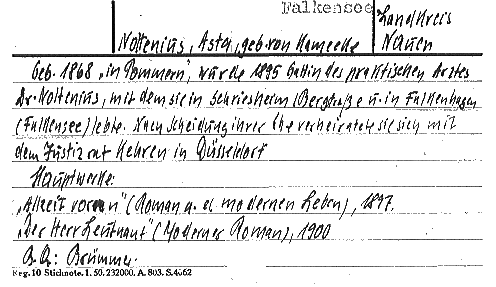 Falkensee
Landkreis
Nottenius, Asta, geb. von Kameeke
Nauen
Geb. 1868 „in Pommern", wurde 1895 Gattin des praktischen Arztes
Dr. Nottenius, mit dem sie in Schriesheim/Bergstraße u. in Falkenhagen
(Falkensee) lebte. Nach Scheidung ihrer Ehe verheiratete sie sich mit
dem Justizrat Kehren in Düsseldorf
Hauptwerke:
„Allzeit voran" (Roman a. d. modernen Leben), 1897.
„Der Herr Leutnant" (Moderner Roman), 1900
Brümmer.
Reg. 10 Stichnote. 1. 50. 232000. A. 803. S. 4062